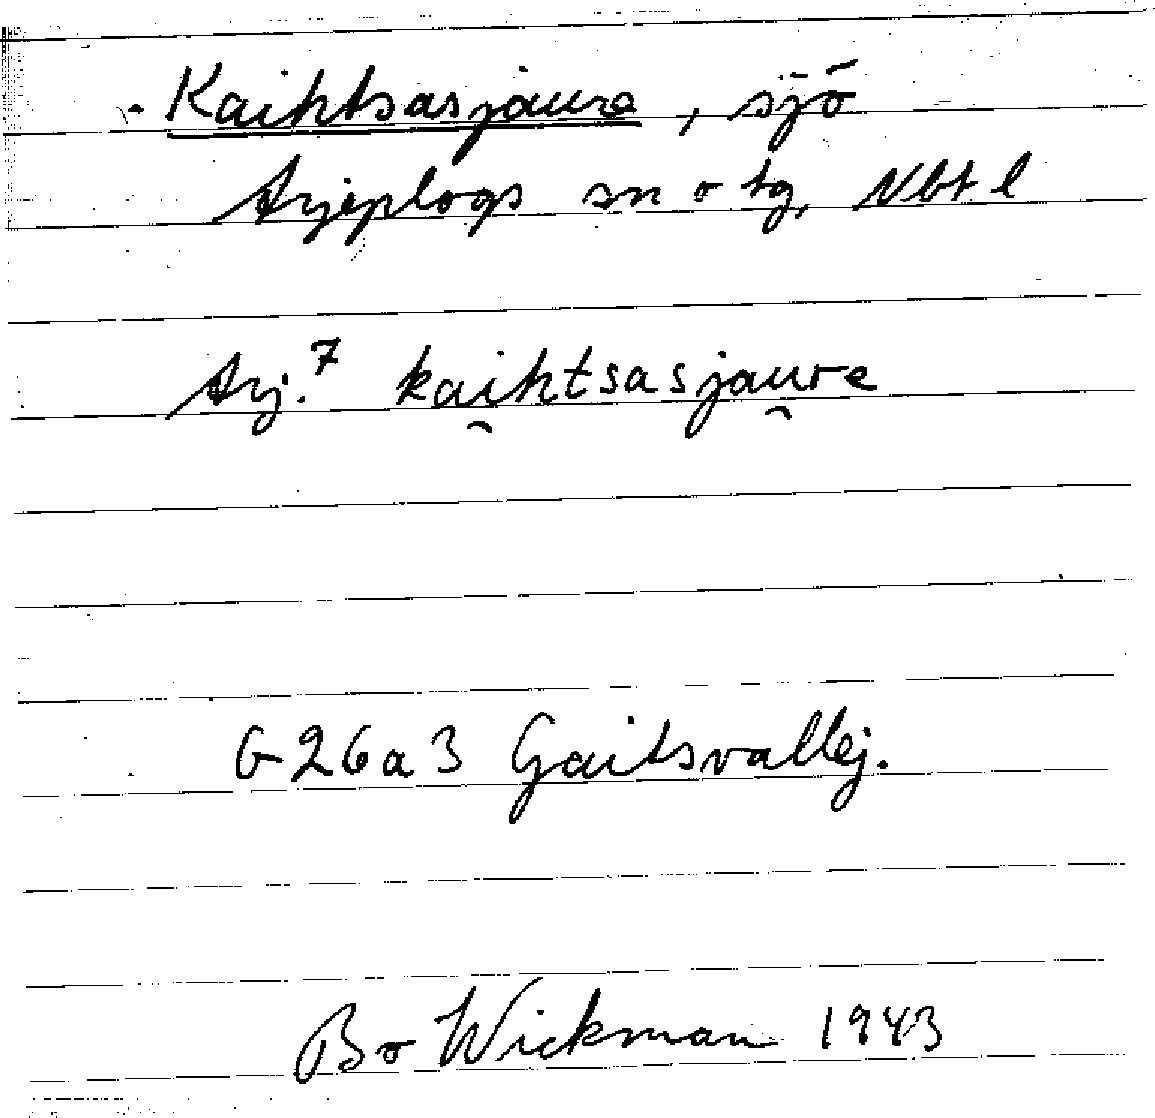 Kaihtsasjaure, sjö
Arjeplogs sn o tg, Nbt l
Arj.⁷ kai̯htsasjau̯re
G 26 a 3 Gaitsvallej.
Bo Wickman 1943